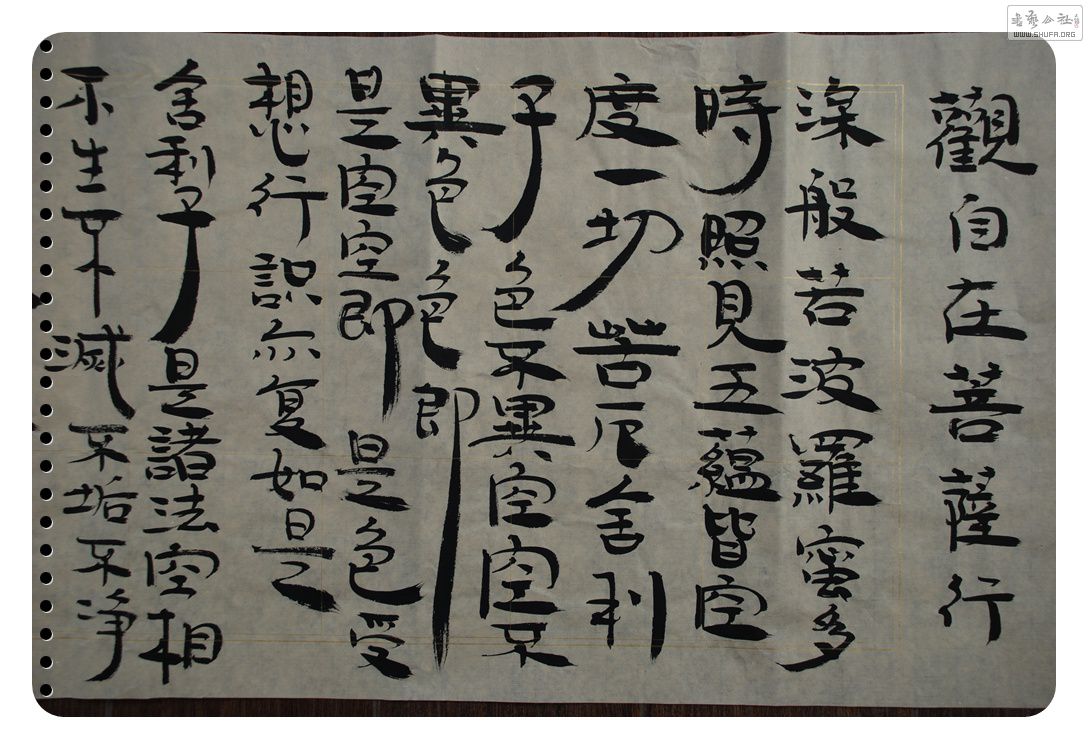 觀自在菩薩行
深般若波羅蜜多
時照見五蘊皆空
度一切苦厄舍利
子色不異空空不
異色色即
是空空即是色受
想行识亦复如是
舍利子是諸法空相
不生不滅不垢不净
WWW.SHUFA.ORG